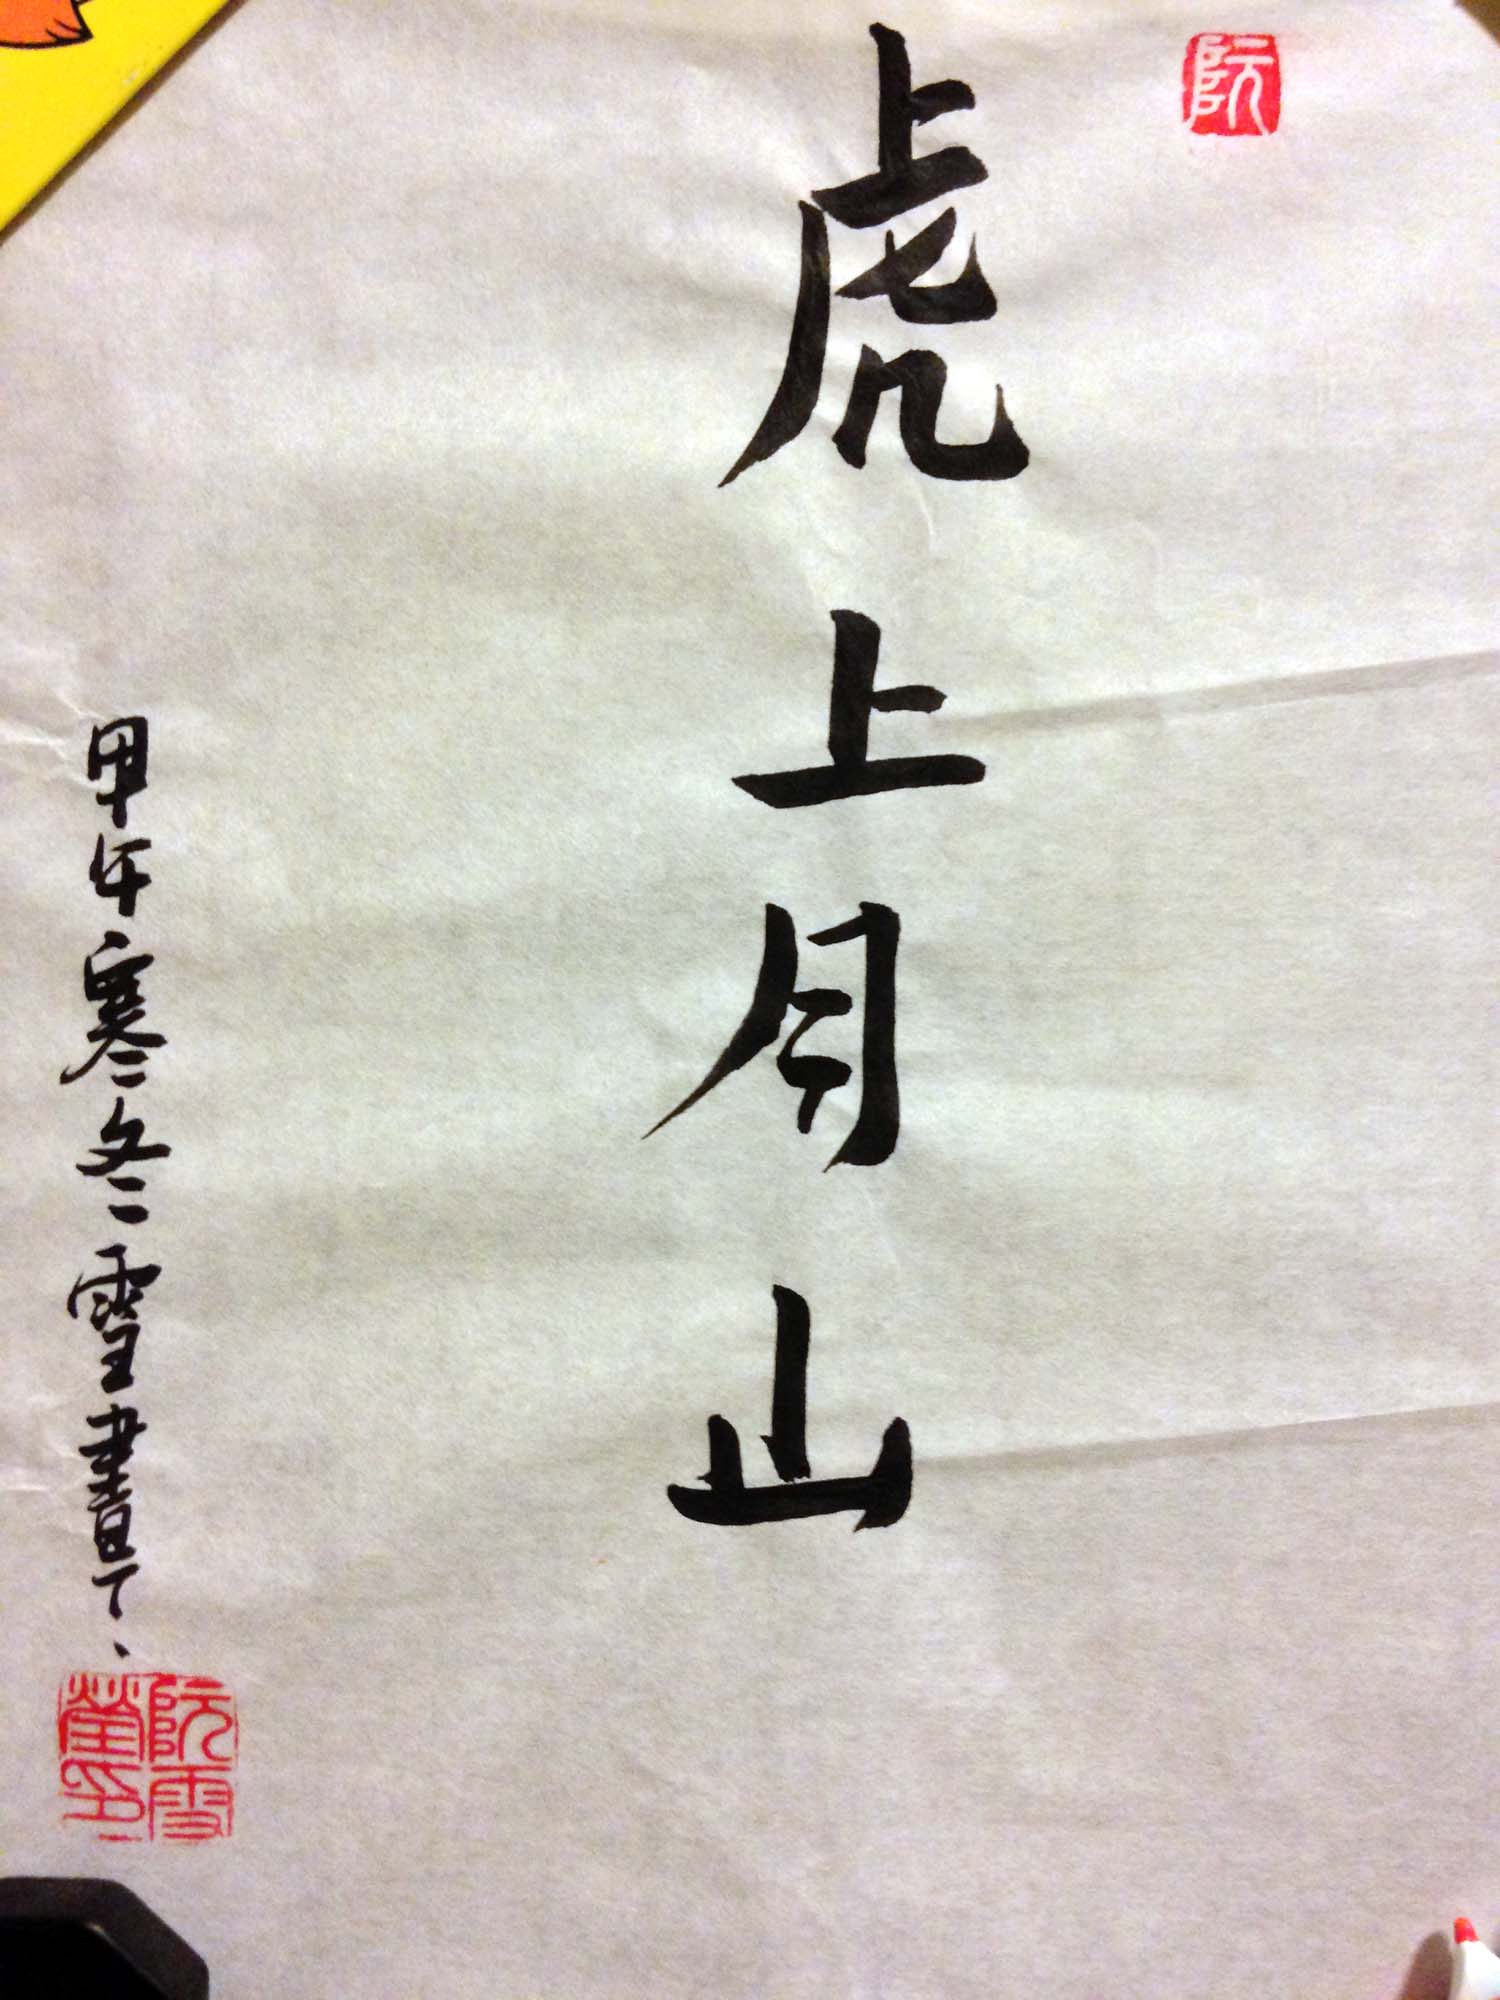 阮
虎上月山
甲午寒冬雪書
阮雪
印